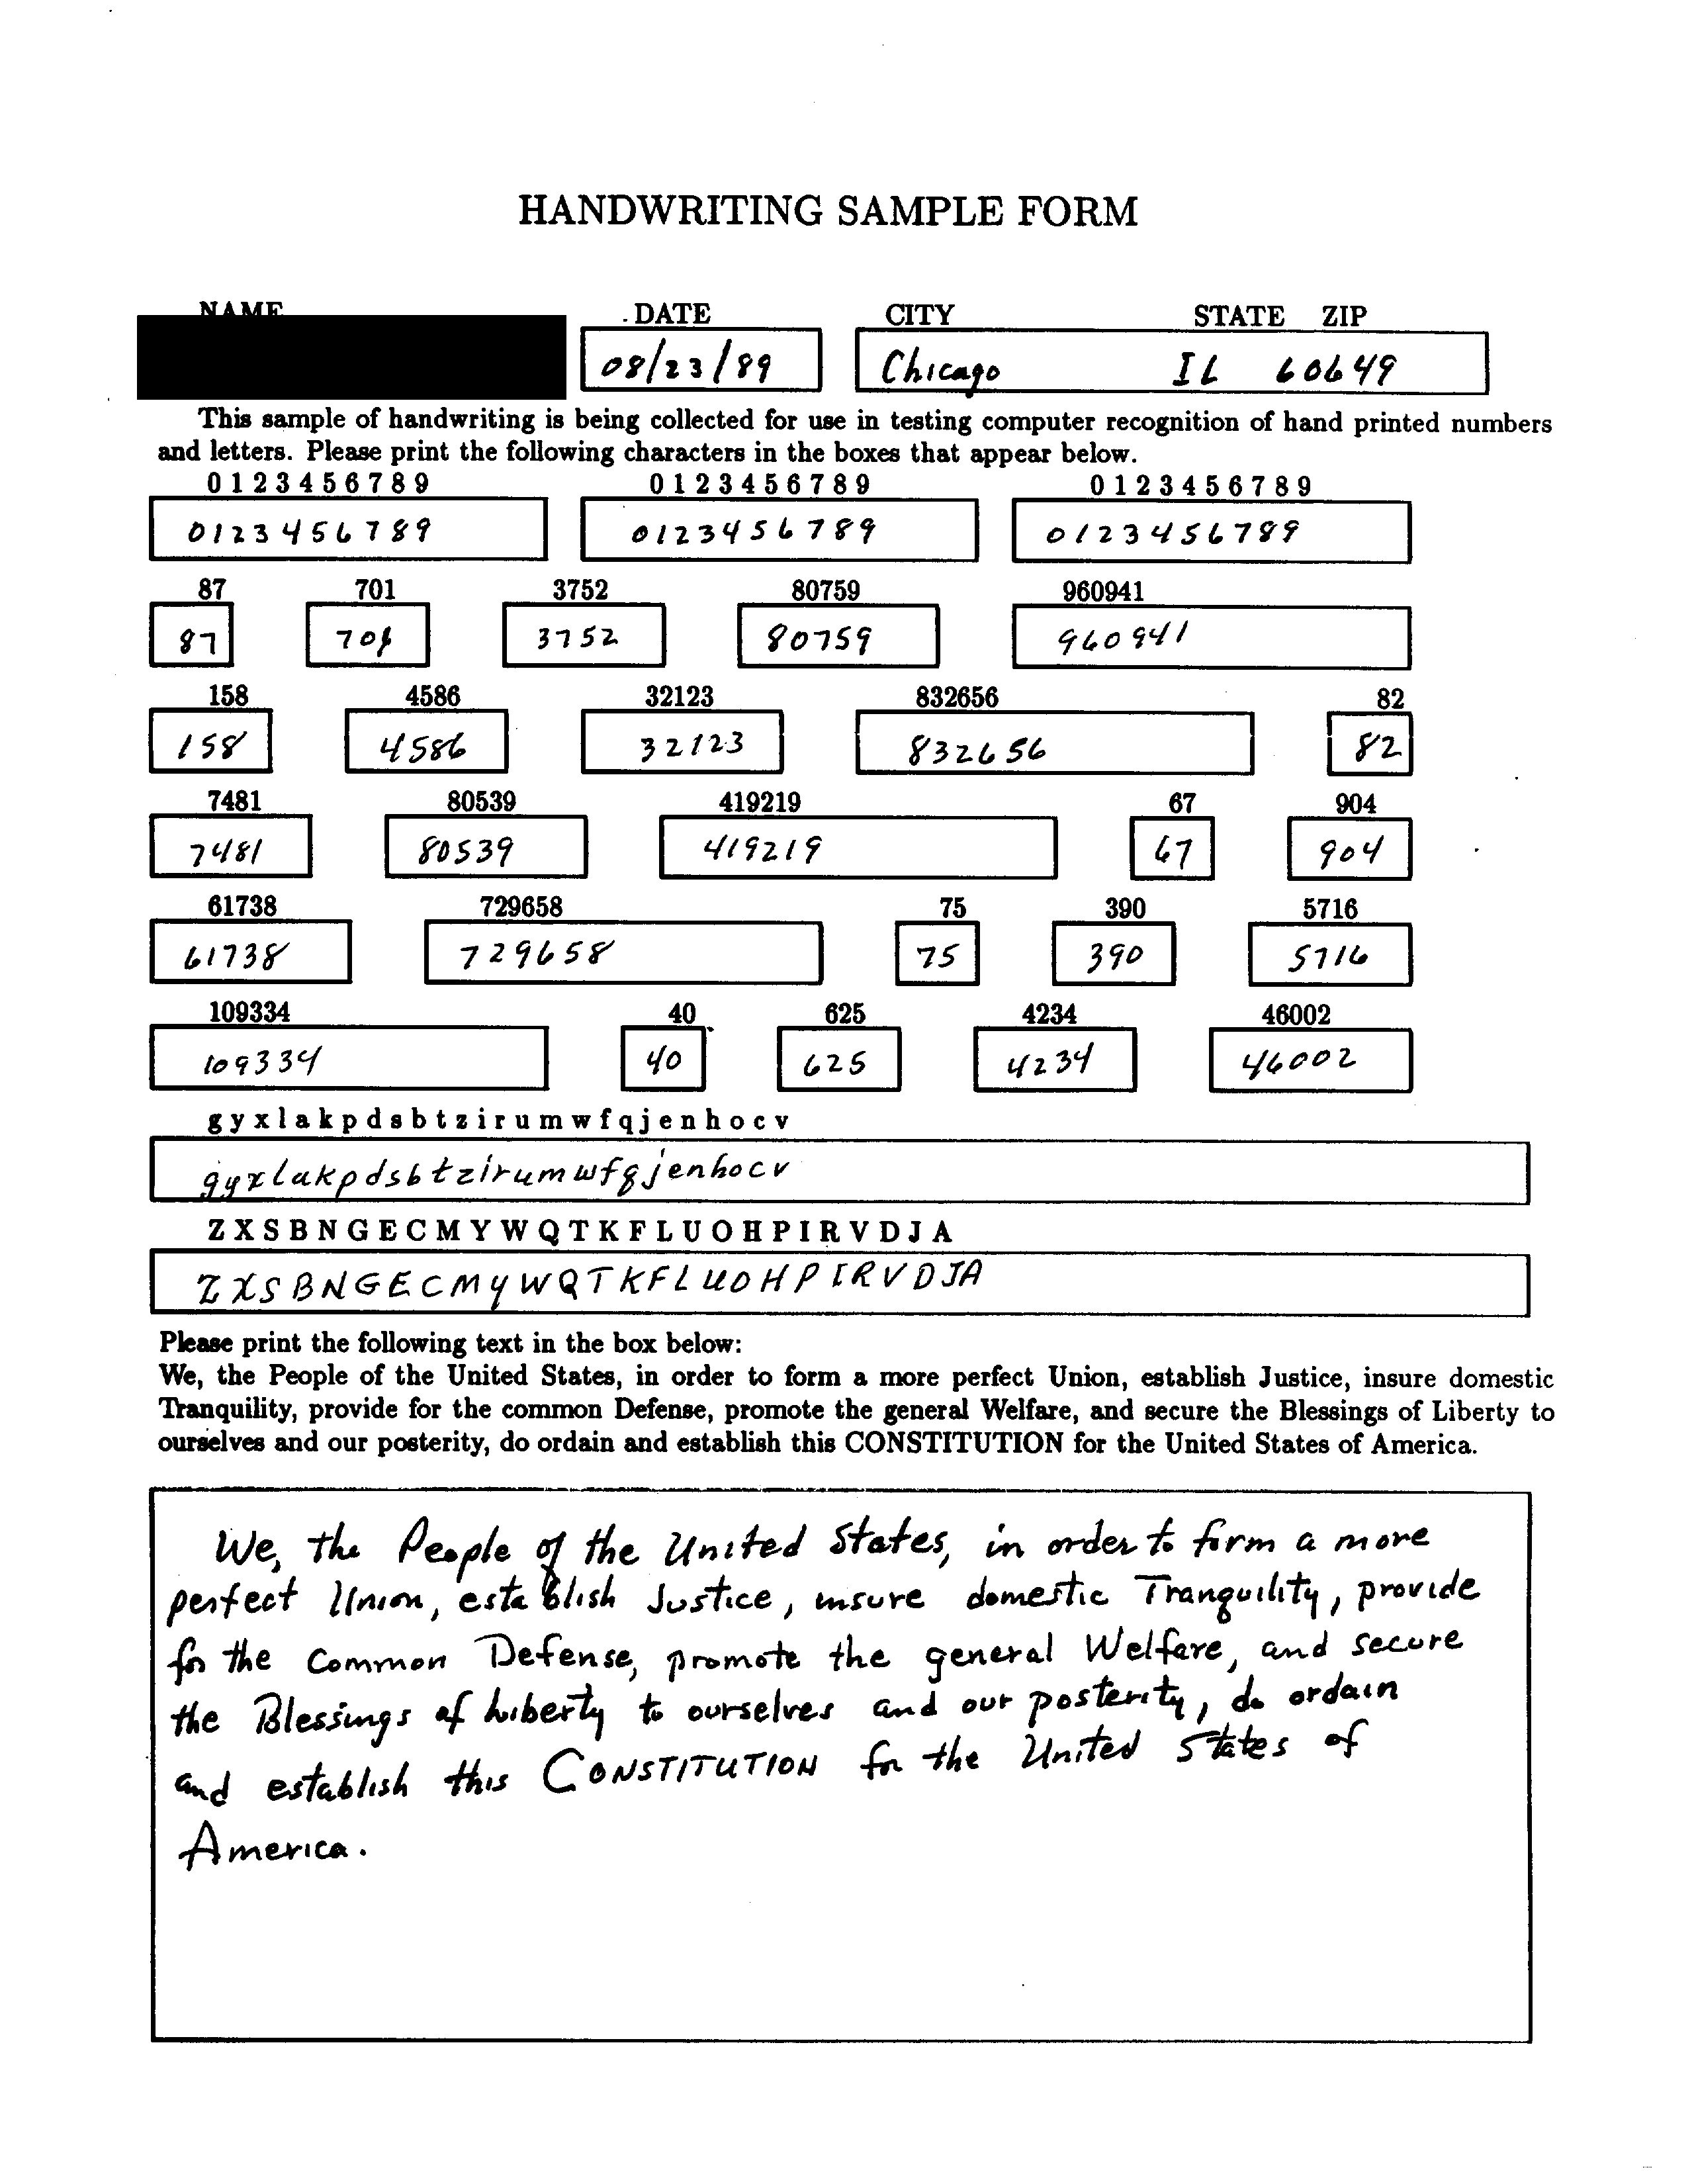 HANDWRITING SAMPLE FORM
NAME DATE CITY STATE ZIP
08/23/89 Chicago IL 60649
This sample of handwriting is being collected for use in testing computer recognition of hand printed numbers
and letters. Please print the following characters in the boxes that appear below.
0 1 2 3 4 5 6 7 8 9 0 1 2 3 4 5 6 7 8 9 0 1 2 3 4 5 6 7 8 9
0123456789 0123456789 0123456789
87 701 3752 80759 960941
87 701 3752 80759 960941
158 4586 32123 832656 82
158 4586 32123 832656 82
7481 80539 419219 67 904
7481 80539 419219 67 904
61738 729658 75 390 5716
61738 729658 75 390 5716
109334 40 625 4234 46002
109334 40 625 4234 46002
g y x l a k p d s b t z i r u m w f q j e n h o c v
gyxlakpdsbtzirumwfqjenhocv
Z X S B N G E C M Y W Q T K F L U O H P I R V D J A
ZXSBNGECMYWQTKFLUOHPIRVDJA
Please print the following text in the box below:
We, the People of the United States, in order to form a more perfect Union, establish Justice, insure domestic
Tranquility, provide for the common Defense, promote the general Welfare, and secure the Blessings of Liberty to
ourselves and our posterity, do ordain and establish this CONSTITUTION for the United States of America.
We, the People of the United States, in order to form a more
perfect Union, establish Justice, insure domestic Tranquility, provide
for the common Defense, promote the general Welfare, and secure
the Blessings of Liberty to ourselves and our posterity, do ordain
and establish this CONSTITUTION for the United States of
America.